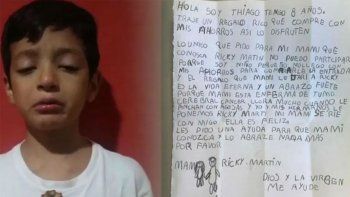 HOLA SOY THIAGO TENGO 8 AÑOS.
TRAJE UN REGALO RICO QUE COMPRE CON
MIS AHORROS ASI LO DISFRUTEN
LO UNICO QUE PIDO PARA MI MAMI QUE
CONOSCA RICKY MARTIN NO PUEDO PARTICIPAR
PORQUE SOY NIÑO
MIS AHORROS PARA COMPRAR LE ENTRADA
Y EL REGALO QUE MAMI LE DARIA RICKY
ES LA VIDA ETERNA Y UN ABRAZO FUETE
PORQUE MAMI ESTA ENFERMA DE TUMO
CEREBRAL CANCER. LLORA MUCHO CUANDO LE
PINCHAN CON AGUJAS Y YO Y MIS HERMANITOS
PONEMOS RICKY MARTI. MI MAMI SE RIE
CON MIGO ELLA ES FELIZ
LES PIDO UNA AYUDA PARA QUE MAMI
CONOZCA Y LO ABRAZE NADA MAS
POR FAVOR
MAMI
RICKY MARTIN
DIOS Y LA VIRGEN
ME AYUDE